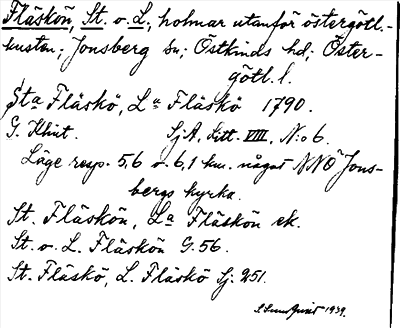 Fläskön, St. o. L., holmar utanför östergötl.-
kusten; Jonsberg sn; Östkinds hd; Öster-
götl. l.
Sta Fläskö, La Fläskö 1790.
G. Klint. SjA, Litt. VIII, N:o 6.
Läge resp. 5,6 o. 6,1 km. något NNÖ Jons-
bergs kyrka.
St. Fläskön, La Fläskön ek.
St. o. L. Fläskön G. 56.
St. Fläskö, L. Fläskö Sj. 251.
1939.